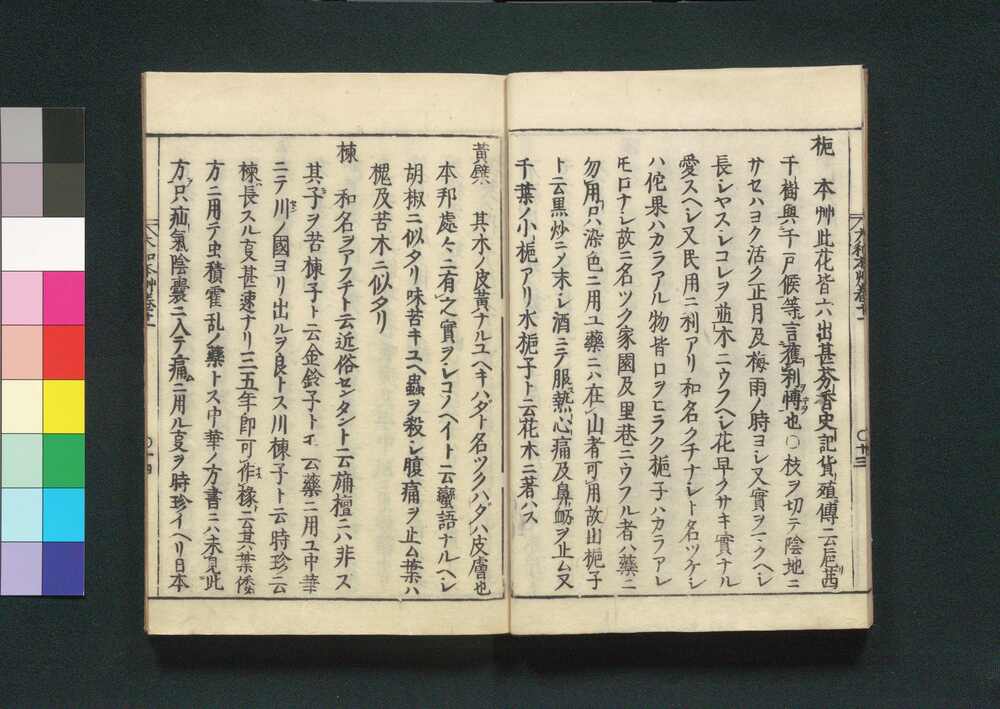 梔 本艸此花皆六出甚芬香史記貨殖傳ニ云巵茜
千樹與千戸侯等言獲利博也〇枝ヲ切テ陰地ニ
サセハヨク活ク正月及梅雨ノ時ヨシ又實ヲマクヘシ
長シヤスシコレヲ園木ニウフヘシ花早クサキ實ナル
愛スヘシ又民用ニ利アリ和名クチナシト名ツケシ
ハ佗果ハカラアル物皆口ヲヒラク梔子ハカラアレ
モ口ナシ故ニ名ツク家園及里巷ニウフル者ハ藥ニ
勿用只染色ニ用ユ藥ニハ在山者可用故出梔子
ト云黒炒ノ末シ酒ニテ服熱心痛及鼻衂ヲ止ム又
千葉ノ小梔アリ水梔子ト云花木ニ著ハス
大和本艸卷十一
〇十三
黄檗 其木ノ皮黄ナルユヘキハダト名ツクハダハ皮膚也
本邦處々ニ有之實ヲシコノヘイト云蠻語ナルヘシ
胡椒ニ似タリ味苦キユヘ蟲ヲ殺シ腹痛ヲ止ム葉ハ
槐及苦木ニ似タリ
楝 和名ヲアフチト云近俗センタント云旃檀ニハ非ス
其子ヲ苦楝子ト云金鈴子トモ云藥ニ用ユ中華
ニテ川ノ國ヨリ出ルヲ良トス川楝子ト云時珍云
楝長スル叓甚速ナリ三五年即可作椽云其葉倭
方ニ用テ虫積霍乱ノ藥トス中華ノ方書ニハ未見此
方只疝氣陰嚢ニ入テ痛ニ用ル叓ヲ時珍イヘリ日本
大和本艸卷十一
〇十四